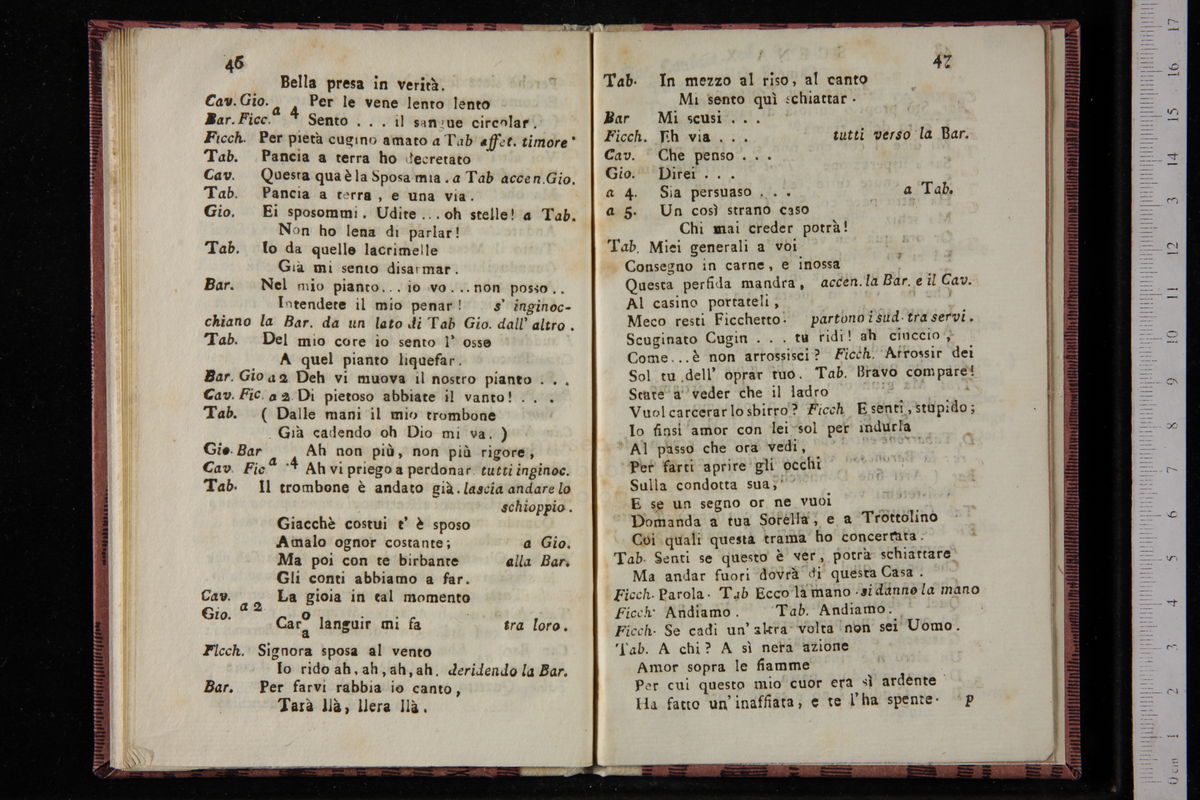 46
Bella presa in verità.
Cav. Gio. a 4 Per le vene lento lento
Bar. Ficc. Sento . . . il sangue circolar.
Ficch. Per pietà cugino amato a Tab affet. timore
Tab. Pancia a terra ho decretato
Cav. Questa qua è la Sposa mia. a Tab accen. Gio.
Tab. Pancia a terra, e una via.
Gio. Ei sposommi. Udite ... oh stelle! a Tab.
Non ho lena di parlar!
Tab. Io da quelle lacrimelle
Già mi sento disarmar.
Bar. Nel mio pianto... io vo ... non posso ..
Intendete il mio penar! s' inginoc-
chiano la Bar. da un lato di Tab Gio. dall' altro.
Tab. Del mio core io sento l' osso
A quel pianto liquefar.
Bar. Gio a 2 Deh vi muova il nostro pianto . . .
Cav. Fic. a 2 Di pietoso abbiate il vanto! . . .
Tab. ( Dalle mani il mio trombone
Già cadendo oh Dio mi va. )
Gio. Bar Ah non più, non più rigore,
Cav. Fic a 4 Ah vi priego a perdonar. tutti inginoc.
Tab. Il trombone è andato già. lascia andare lo
schioppio.
Giacchè costui t' è sposo
Amalo ognor costante; a Gio.
Ma poi con te birbante alla Bar.
Gli conti abbiamo a far.
Cav. La gioia in tal momento
Gio. a 2
Caro/a languir mi fa tra loro.
Ficch. Signora sposa al vento
Io rido ah, ah, ah, ah. deridendo la Bar.
Bar. Per farvi rabbia io canto,
Tarà llà, llera llà.
47
Tab. In mezzo al riso, al canto
Mi sento quì schiattar.
Bar Mi scusi . . .
Ficch. Eh via . . . tutti verso la Bar.
Cav. Che penso . . .
Gio. Direi . . .
a 4. Sia persuaso . . . a Tab.
a 5. Un così strano caso
Chi mai creder potrà!
Tab. Miei generali a voi
Consegno in carne, e inossa
Questa perfida mandra, accen. la Bar. e il Cav.
Al casino portateli,
Meco resti Ficchetto: partono i sud. tra servi.
Scuginato Cugin . . . tu ridi! ah ciuccio,
Come...è non arrossisci? Ficch. Arrossir dei
Sol tu dell' oprar tuo. Tab. Bravo compare!
State a veder che il ladro
Vuol carcerar lo sbirro? Ficch E senti, stupido;
Io finsi amor con lei sol per indurla
Al passo che ora vedi,
Per farti aprire gli occhi
Sulla condotta sua,
E se un segno or ne vuoi
Domanda a tua Sorella, e a Trottolino
Coi quali questa trama ho concertata.
Tab. Senti se questo è ver, potrà schiattare
Ma andar fuori dovrà di questa Casa.
Ficch. Parola. Tab Ecco la mano. si danno la mano
Ficch. Andiamo. Tab. Andiamo.
Ficch. Se cadi un' altra volta non sei Uomo.
Tab. A chi? A sì nera azione
Amor sopra le fiamme
Per cui questo mio cuor era sì ardente
Ha fatto un' inaffiata, e te l'ha spente. p
17
16
15
14
13
12
11
10
9
8
7
6
5
4
3
2
1
0 cm